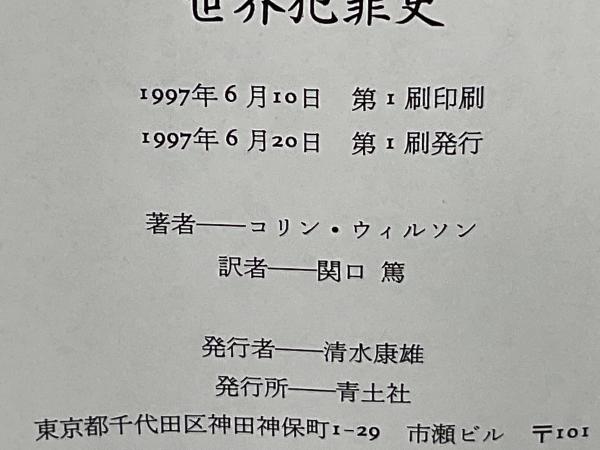 世界犯罪史
1997年6月10日　第1刷印刷
1997年6月20日　第1刷発行
著者——コリン・ウィルソン
訳者——関口 篤
発行者——清水康雄
発行所——青土社
東京都千代田区神田神保町1-29　市瀬ビル　〒101